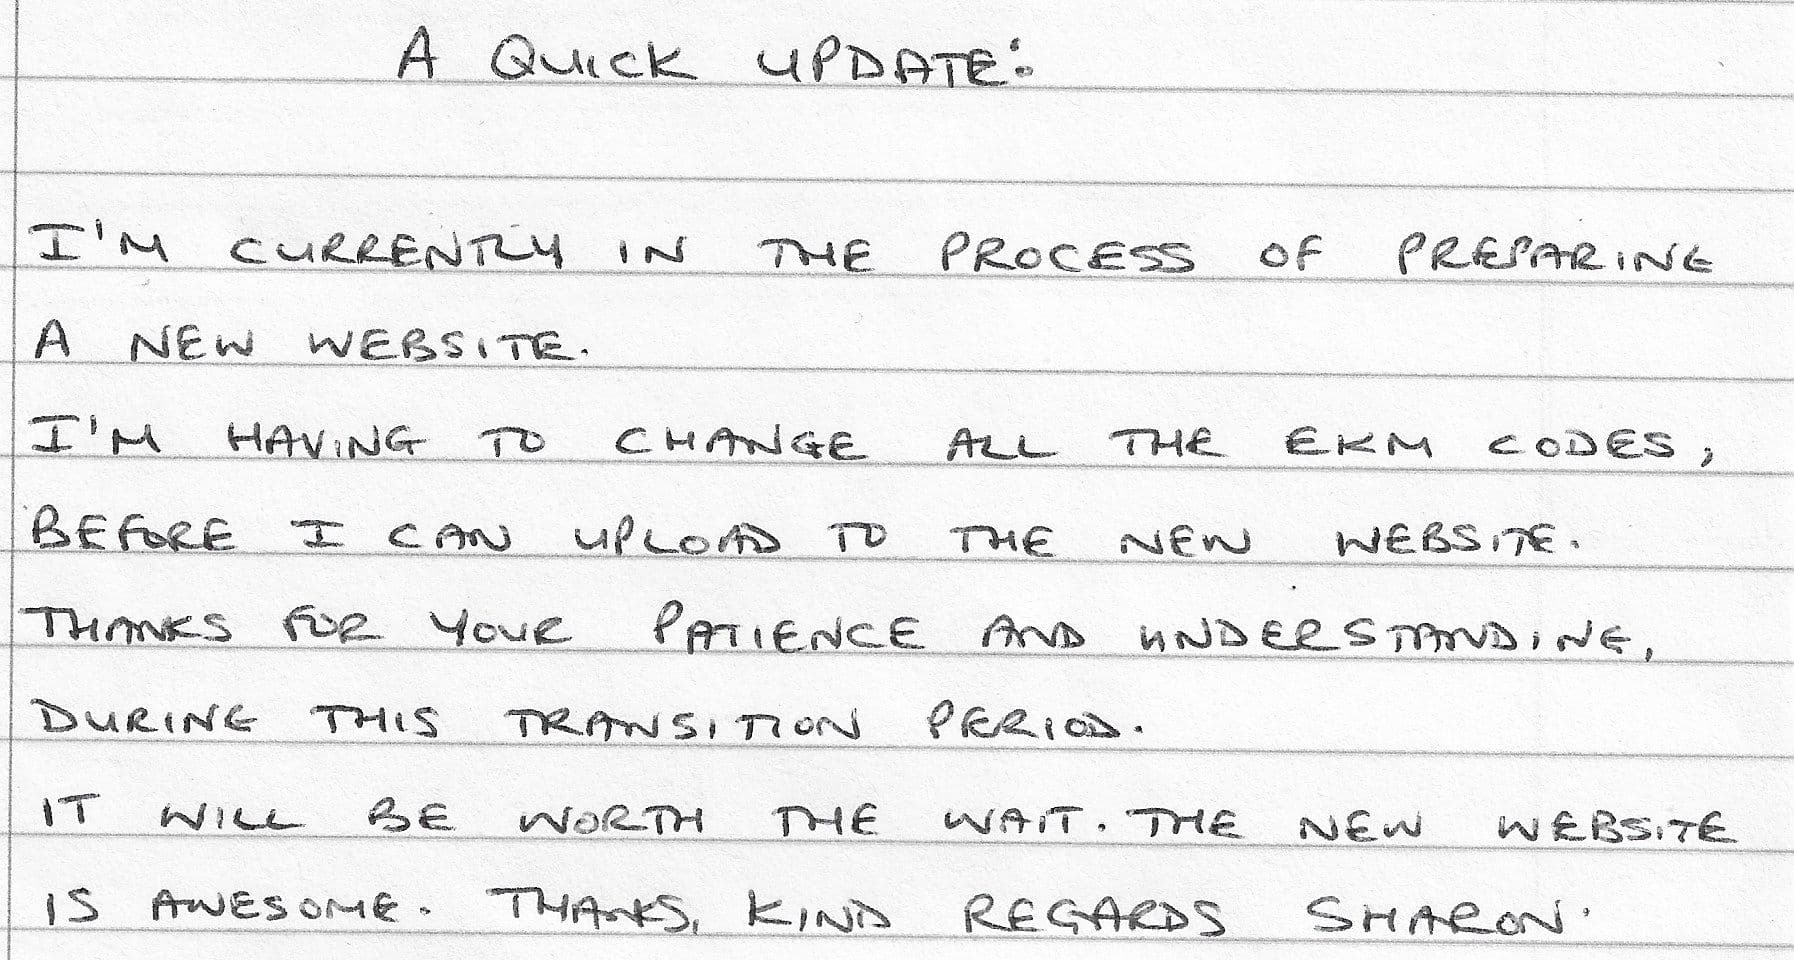 A QUICK UPDATE:
I'M CURRENTLY IN THE PROCESS OF PREPARING
A NEW WEBSITE.
I'M HAVING TO CHANGE ALL THE EKM CODES,
BEFORE I CAN UPLOAD TO THE NEW WEBSITE.
THANKS FOR YOUR PATIENCE AND UNDERSTANDING,
DURING THIS TRANSITION PERIOD.
IT WILL BE WORTH THE WAIT. THE NEW WEBSITE
IS AWESOME. THANKS, KIND REGARDS SHARON.